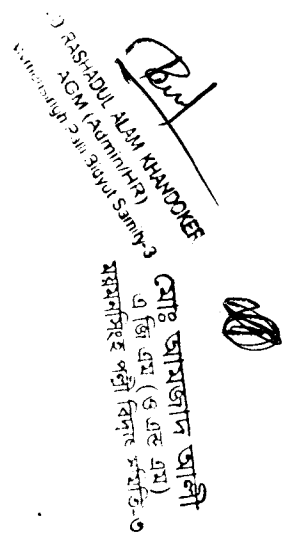 RASHADUL ALAM KHANDOKER
AGM (Admin/HR)
Bidyut Samity-3
মোঃ আমজাদ আলী
এ জি এম (ও এন্ড এম)
ময়মনসিংহ পল্লী বিদ্যুৎ সমিতি-৩